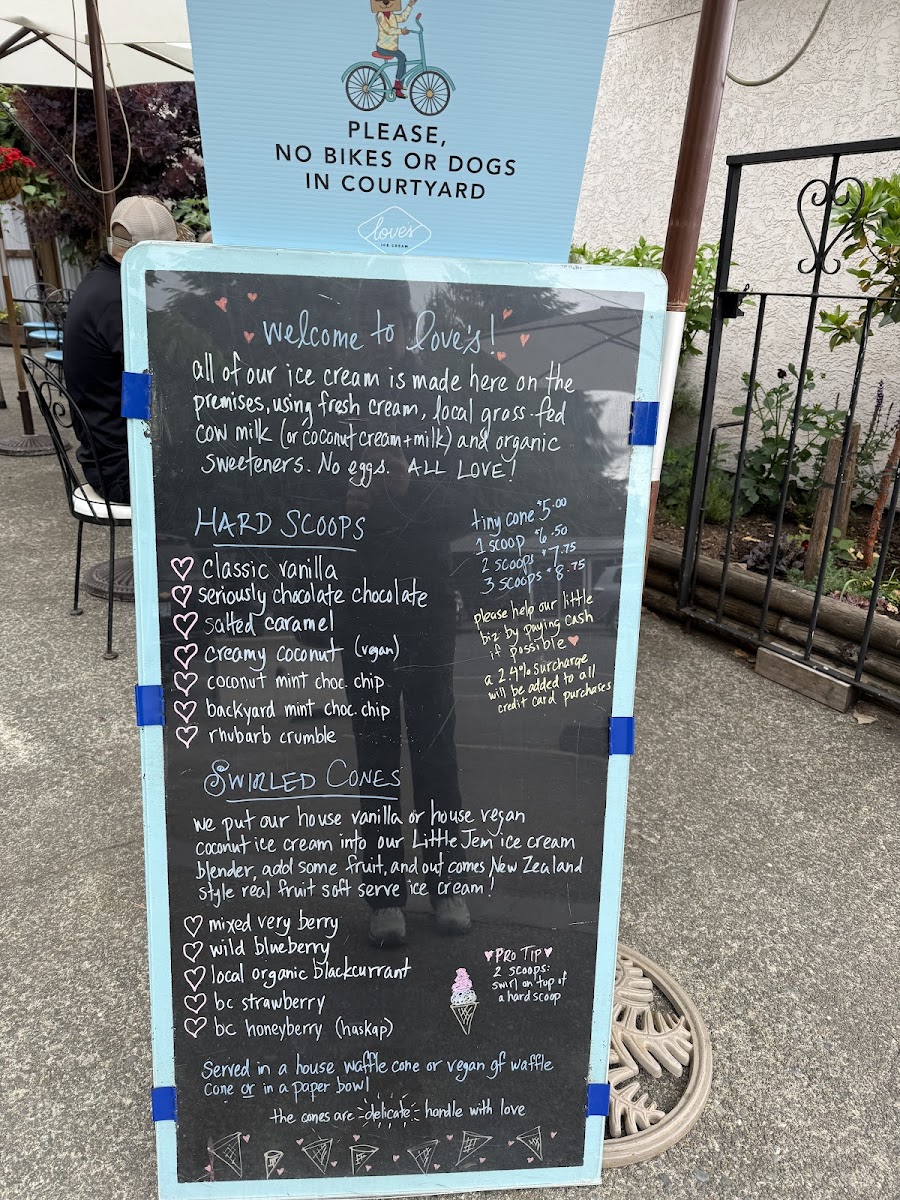 PLEASE,
NO BIKES OR DOGS
IN COURTYARD
love's
ICE CREAM
welcome to love's!
all of our ice cream is made here on the
premises, using fresh cream, local grass-fed
cow milk (or coconut cream + milk) and organic
sweeteners. No eggs. ALL LOVE!
HARD SCOOPS
classic vanilla
seriously chocolate chocolate
salted caramel
creamy coconut (vegan)
coconut mint choc. chip
backyard mint choc. chip
rhubarb crumble
tiny cone $5.00
1 scoop $6.50
2 scoops $7.75
3 scoops $8.75
please help our little
biz by paying cash
if possible
a 2.4% surcharge
will be added to all
credit card purchases
SWIRLED CONES
we put our house vanilla or house vegan
coconut ice cream into our Little Jem ice cream
blender, add some fruit, and out comes New Zealand
style real fruit soft serve ice cream!
mixed very berry
wild blueberry
local organic blackcurrant
bc strawberry
bc honeyberry (haskap)
PRO TIP
2 SCOOPS:
swirl on top of
a hard scoop
Served in a house waffle cone or vegan gf waffle
cone or in a paper bowl
the cones are delicate handle with love